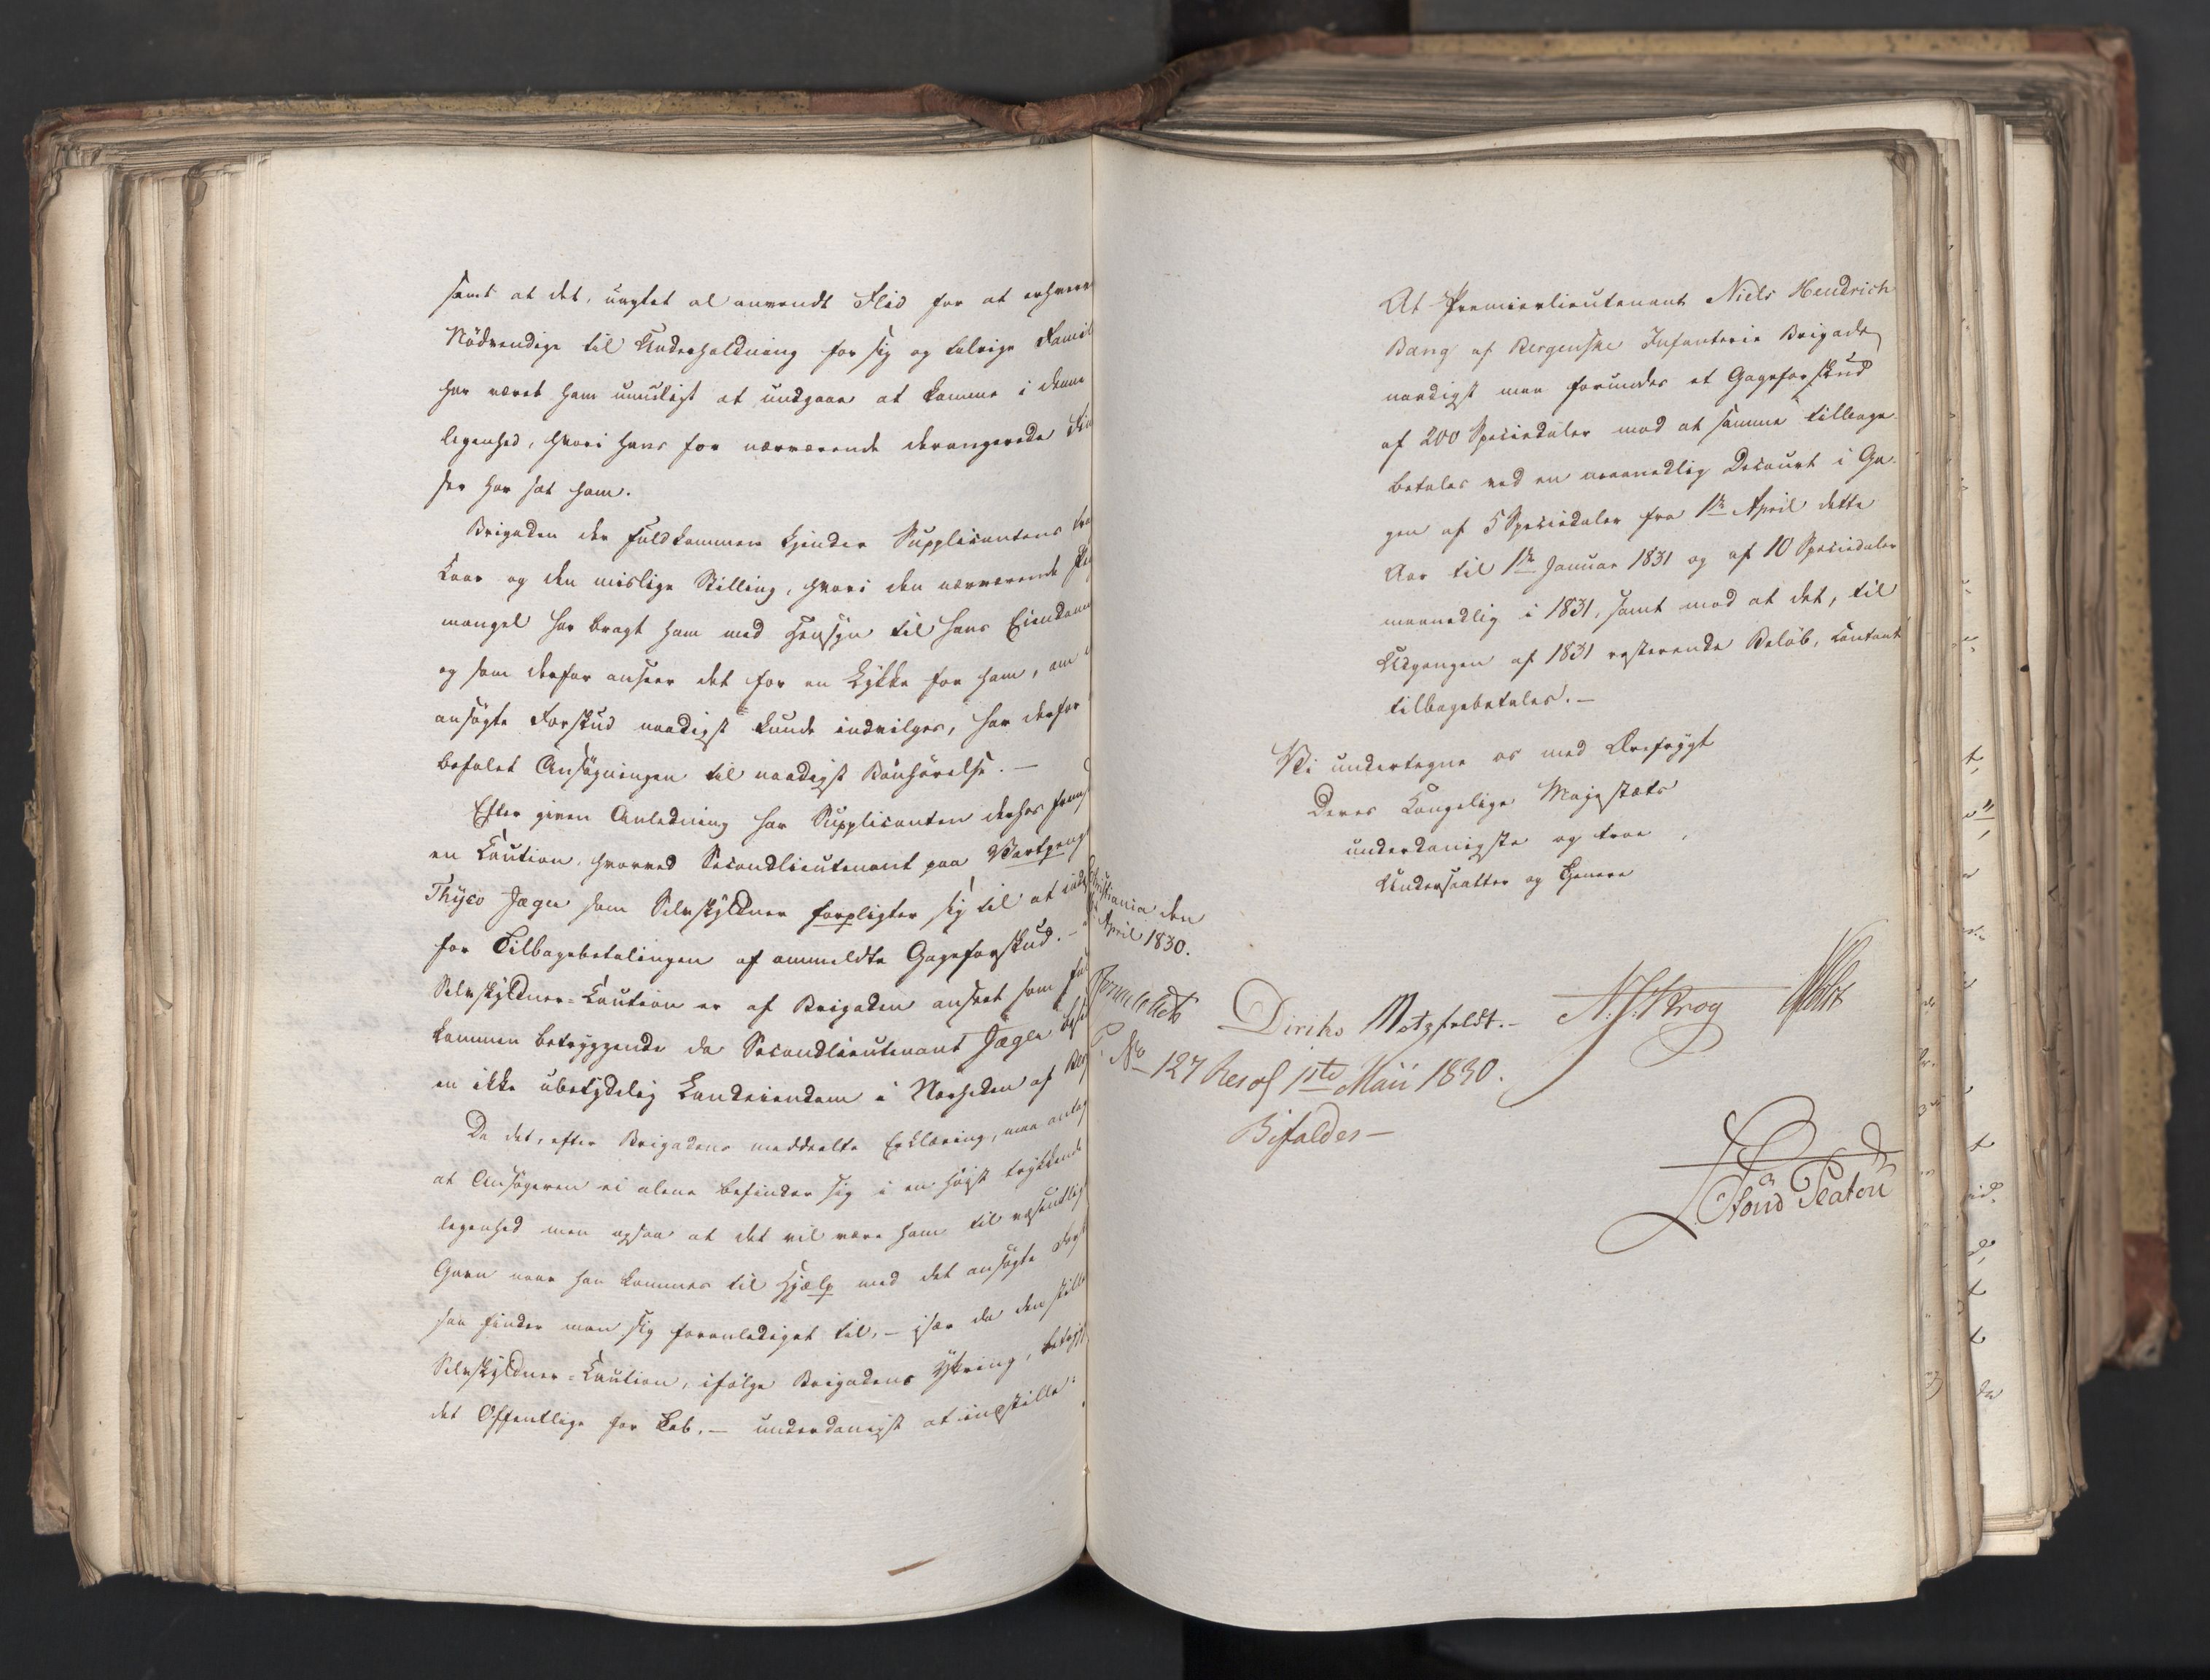 samt at det, uagtet al anvendt Flid for at erhverve
Nödvendige til Underholdning for sig og talrige Famil
har været ham umuligt at undgaae at komme i denne
legenhed, hvori hans for nærværende derangerede Fin
ser har sat ham.
Brigaden der fuldkommen kjender Supplicantens
Kaar og den mislige Stilling, hvori den nærværende
mangel har bragt ham med Hensyn til hans Eiendom
og som derfor anseer det for en Lykke for ham, om
ansögte Forskud naadigst kunde indvilges, har derfor
befalet Ansögningen til naadigst Bönhörelse. —
Efter given Anledning har Supplicanten derhos frem
en Caution, hvorved Secondlieutenant paa Vartpenge
Thyco Jæger som Selvskyldner forpligter sig til at ind
for Tilbagebetalingen af anmeldte Gageforskud. —
Selvskyldner-Caution er af Brigaden anseet som ful
kommen betryggende da Secondlieutenant Jæger
en ikke ubetydelig Landeiendom i Nærheden af
Da det, efter Brigadens meddeelte Erklæring, maa antag
at Ansögeren ei alene befinder sig i en höist trykkende
legenhed men ogsaa at det vil være ham til væsentlig
Gavn naar han kommes til Hjælp med det ansögte Fors
saa finder man sig foranlediget til, — især da den stille
Selvskyldner-Caution, ifölge Brigadens Yttring, betryg
det Offentlige for Tab, — underdanigst at indstille:
At Premierlieutenant Niels Hendrich
Bang af Bergenske Infanterie Brigade
naadigst maa forundes et Gageforskud
af 200 Speciedaler mod at samme tilbage-
betales ved en maanedlig Decourt i Ga-
gen af 5 Speciedaler fra 1ste April dette
Aar til 1ste Januar 1831 og af 10 Speciedaler
maanedlig i 1831, samt mod at det, til
Udgangen af 1831 resterende Belöb, contant
tilbagebetales. —
Vi undertegne os med Ærefrygt
Deres Kongelige Majestæts
underdanigste og troe
Undersaatter og Tjenere
Christiania den
April 1830.
Diriks Motzfeldt. — N. J. Krog Holst
No 127 Resol 1ste Maii 1830.
Bifaldes —